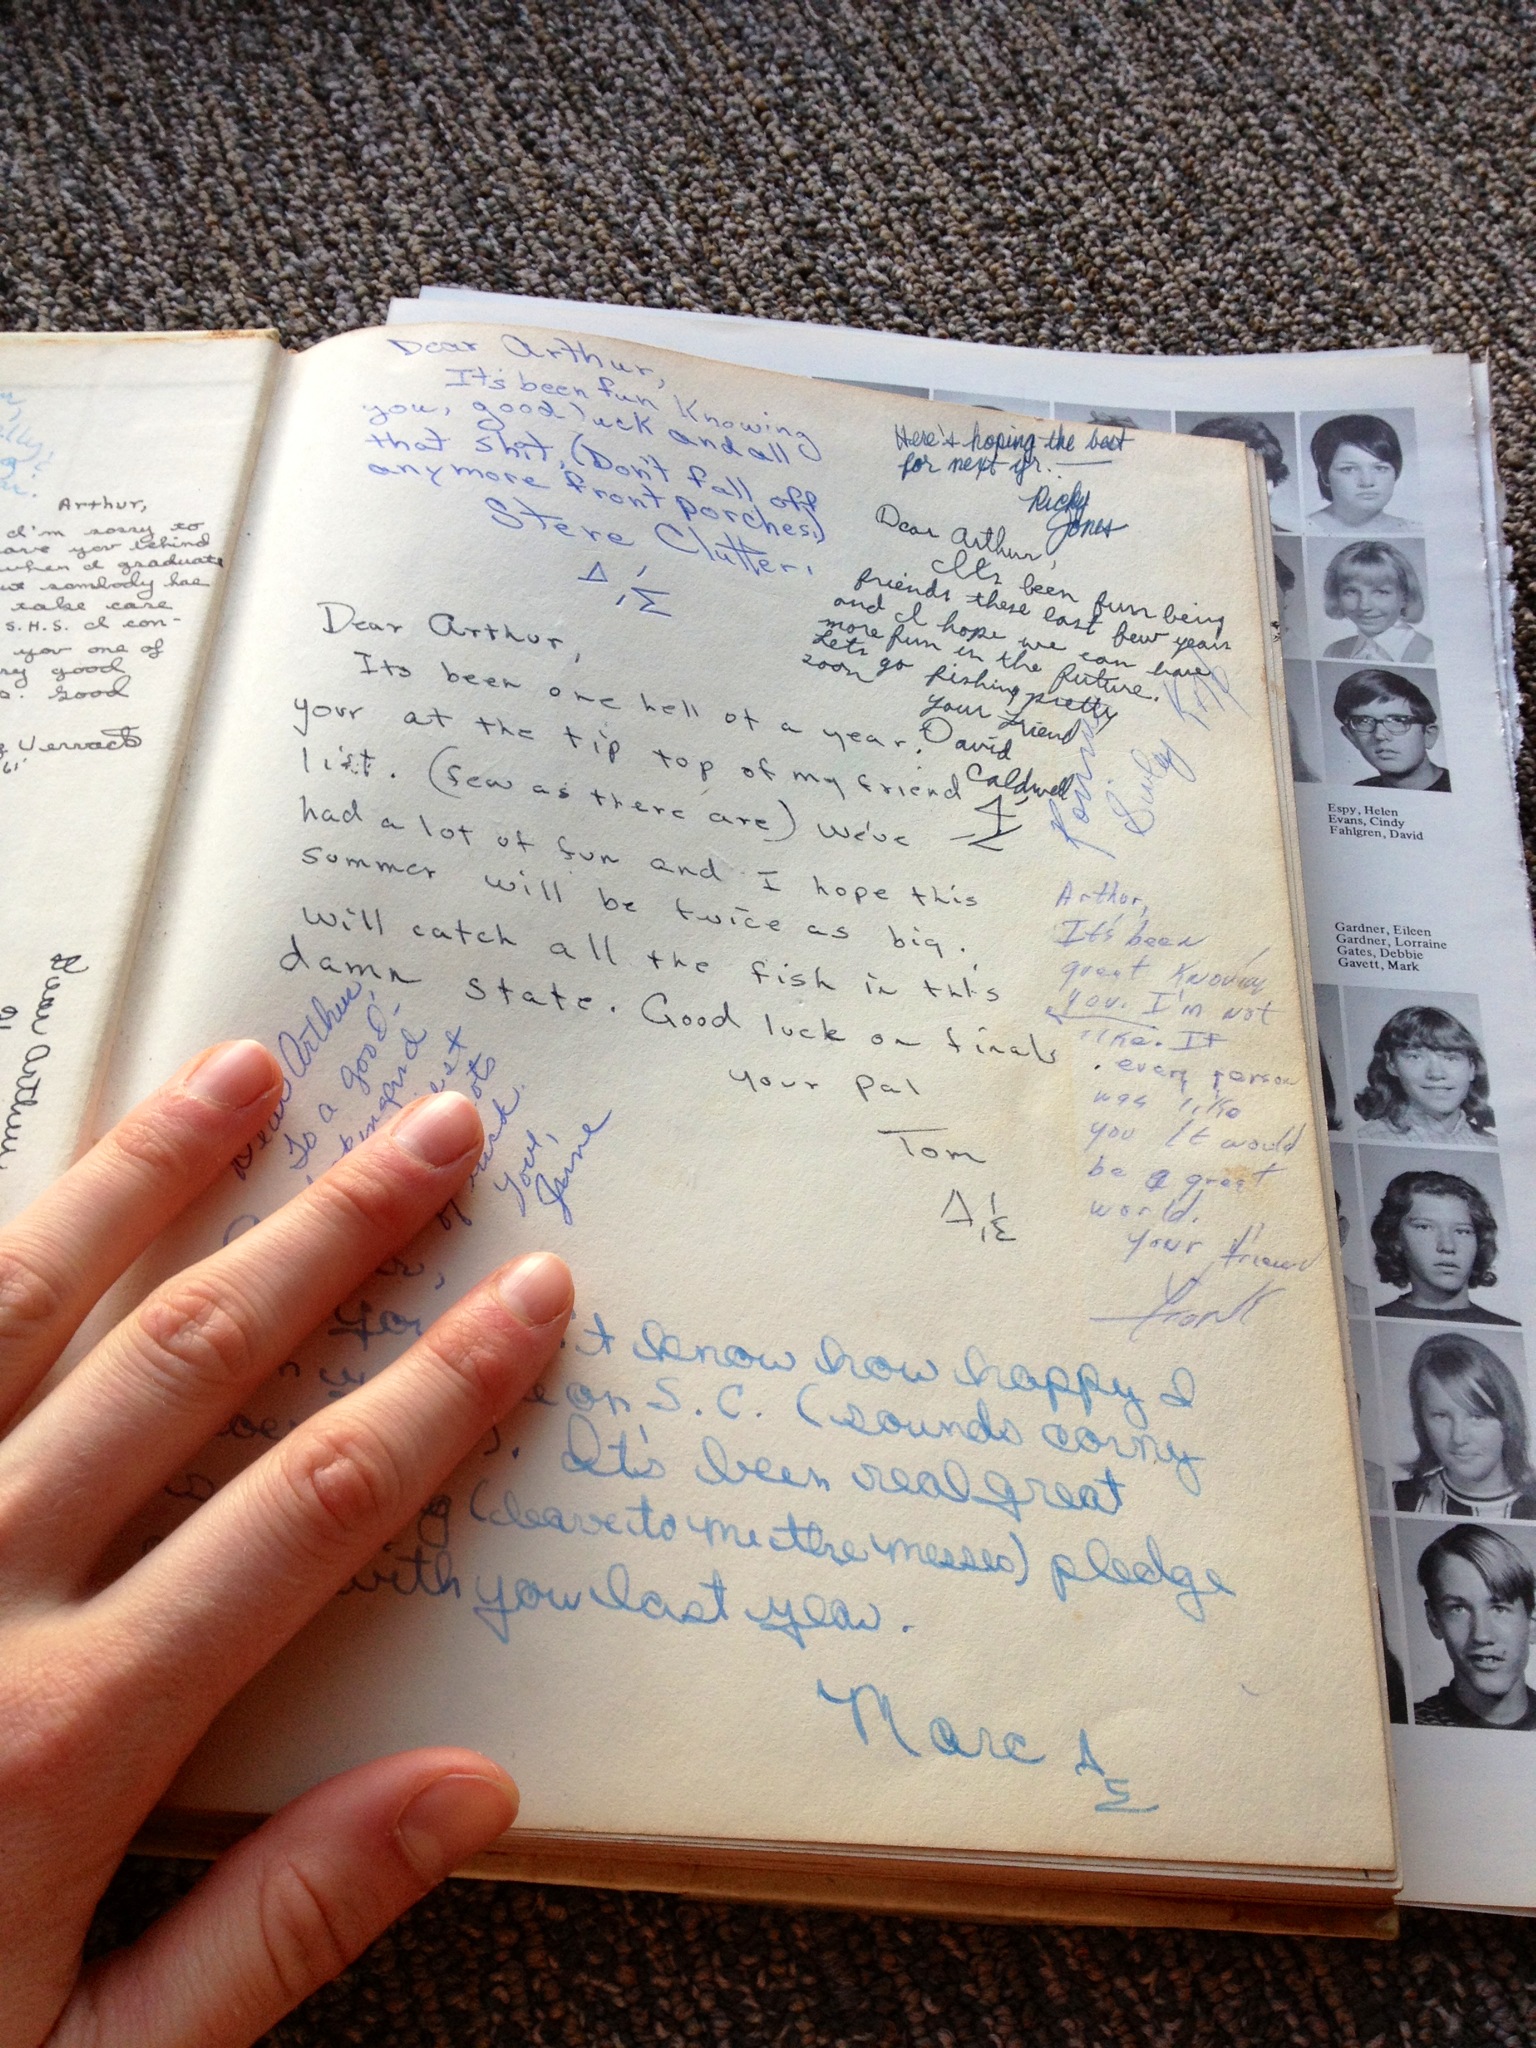 Arthur,
I'm sorry to
you behind
when I graduate
sombody has
take care
S.H.S. I con-
you one of
good
good
61'
Dear Arthur
Dear Arthur,
It's been fun Knowing
you, good luck and all
that shit, (Don't fall off
anymore front porches.)
Steve Clutter.
Δ,Σ
Here's hoping the best
for next yr.—
Ricky
Jones
Dear Arthur,
Its been fun being
friends these last few years
and I hope we can have
more fun in the future.
Lets go fishing pretty
soon
your friend
David
Caldwell
Δ Σ
Dear Arthur,
Its been one hell of a year.
your at the tip top of my friend
list. (few as there are) we've
had a lot of fun and I hope this
summer will be twice as big.
will catch all the fish in this
damn state. Good luck on finals
your pal
Tom
Δ,Σ
Arthur,
It's been
great Knowing
you. I'm not
like. If
every person
was like
you it would
be a great
world.
your friend
Frank
Dear Arthur,
To a good
of luck.
Love,
June
know how happy I
on S.C. (sounds corny
It's been real great
(leave to me the messes) pledge
with you last year.
Marc Δ Σ
Espy, Helen
Evans, Cindy
Fahlgren, David
Gardner, Eileen
Gardner, Lorraine
Gates, Debbie
Gavett, Mark